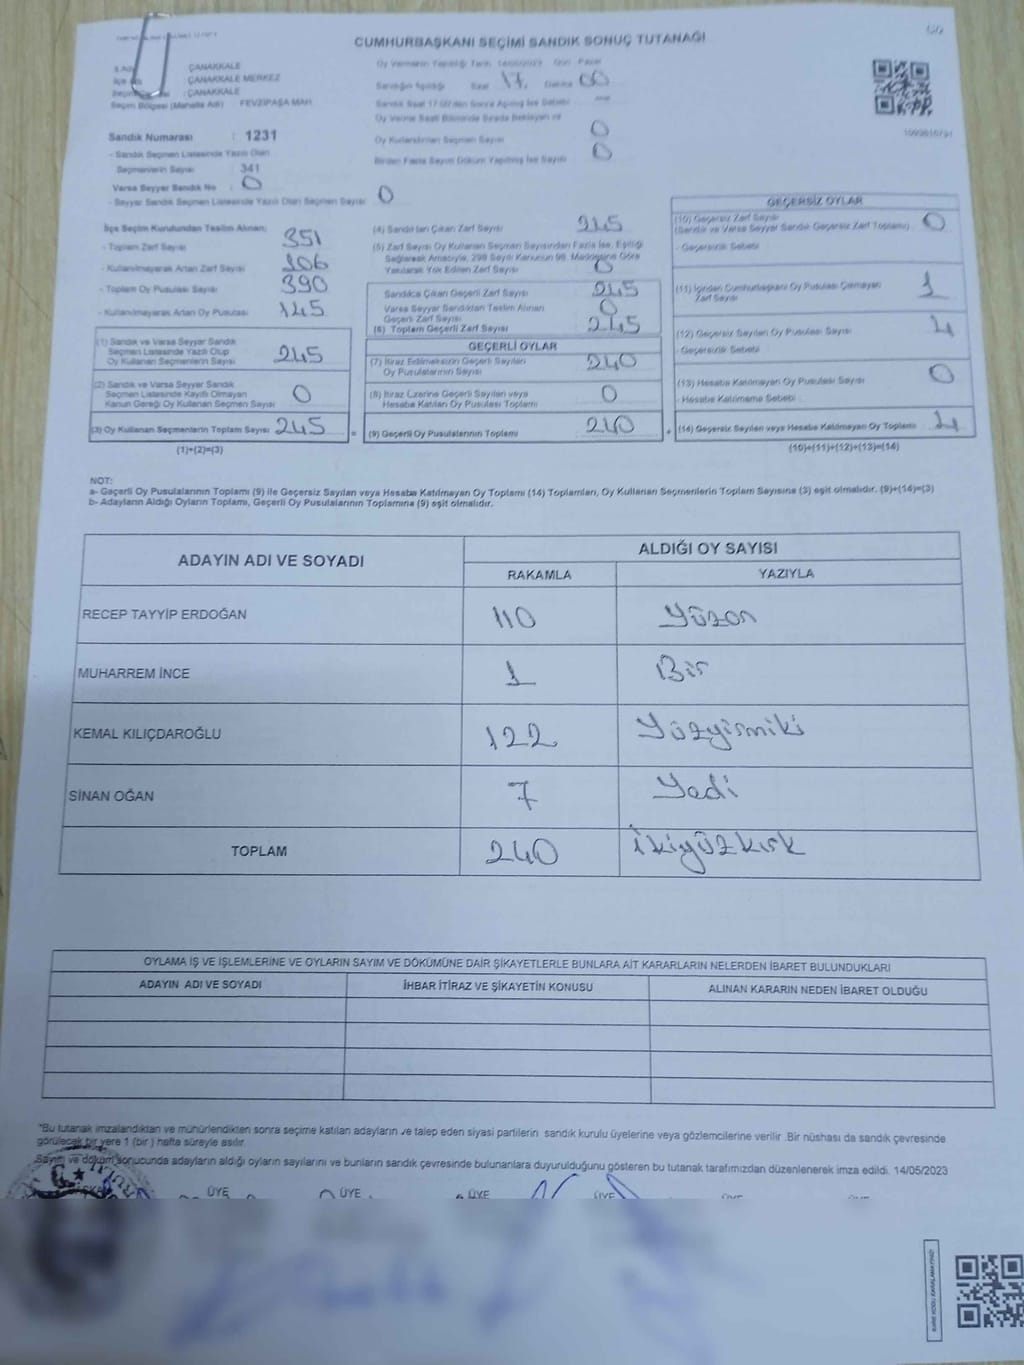 CUMHURBAŞKANI SEÇİMİ SANDIK SONUÇ TUTANAĞI
ÇANAKKALE
ÇANAKKALE MERKEZ
: ÇANAKKALE
Seçim Bölgesi (Mahalle Adı) FEVZİPAŞA MAH.
Sandık Numarası : 1231
- Sandık Seçmen Listesinde Yazılı Olan
Seçmenlerin Sayısı : 341
Varsa Seyyar Sandık No : 0
- Seyyar Sandık Seçmen Listesinde Yazılı Olan Seçmen Sayısı 0
Oy Vermenin Yapıldığı Tarih 14/05/2023 Gün Pazar
Sandığın Açıldığı Saat 17. Dakika 00
Sandık Saat 17.00'den Sonra Açılmış İse Sebebi
Oy Kullandırılan Seçmen Sayısı 0
Birden Fazla Sayım Döküm Yapılmış İse Sayısı 0
İlçe Seçim Kurulundan Teslim Alınan;
- Toplam Zarf Sayısı 351
- Kullanılmayarak Artan Zarf Sayısı 106
- Toplam Oy Pusulası Sayısı 390
- Kullanılmayarak Artan Oy Pusulası 145
(1) Sandık ve Varsa Seyyar Sandık
Seçmen Listesinde Yazılı Olup
Oy Kullanan Seçmenlerin Sayısı 245
(2) Sandık ve Varsa Seyyar Sandık
Seçmen Listesinde Kayıtlı Olmayan
Kanun Gereği Oy Kullanan Seçmen Sayısı 0
(3) Oy Kullanan Seçmenlerin Toplam Sayısı 245
(1)+(2)=(3)
(4) Sandıktan Çıkan Zarf Sayısı 245
(5) Zarf Sayısı Oy Kullanan Seçmen Sayısından Fazla İse, Eşitliği
Sağlamak Amacıyla, 298 Sayılı Kanunun 98. Maddesine Göre
Yakılarak Yok Edilen Zarf Sayısı 0
Sandıkta Çıkan Geçerli Zarf Sayısı 245
Varsa Seyyar Sandıktan Teslim Alınan
Geçerli Zarf Sayısı 0
(6) Toplam Geçerli Zarf Sayısı 245
GEÇERLİ OYLAR
(7) İtiraz Edilmeksizin Geçerli Sayılan
Oy Pusulalarının Sayısı 240
(8) İtiraz Üzerine Geçerli Sayılan veya
Hesaba Katılan Oy Pusulası Toplamı 0
= (9) Geçerli Oy Pusulalarının Toplamı 240
GEÇERSİZ OYLAR
(10) Geçersiz Zarf Sayısı
(Sandık ve Varsa Seyyar Sandık Geçersiz Zarf Toplamı) 0
- Geçersizlik Sebebi
(11) İçinden Cumhurbaşkanı Oy Pusulası Çıkmayan
Zarf Sayısı 1
(12) Geçersiz Sayılan Oy Pusulası Sayısı 4
- Geçersizlik Sebebi
(13) Hesaba Katılmayan Oy Pusulası Sayısı 0
- Hesaba Katılmama Sebebi
+ (14) Geçersiz Sayılan veya Hesaba Katılmayan Oy Toplamı
(10)+(11)+(12)+(13)=(14)
NOT:
a- Geçerli Oy Pusulalarının Toplamı (9) ile Geçersiz Sayılan veya Hesaba Katılmayan Oy Toplamı (14) Toplamları, Oy Kullanan Seçmenlerin Toplam Sayısına (3) eşit olmalıdır. (9)+(14)=(3)
b- Adayların Aldığı Oyların Toplamı, Geçerli Oy Pusulalarının Toplamına (9) eşit olmalıdır.
ADAYIN ADI VE SOYADI ALDIĞI OY SAYISI
RAKAMLA YAZIYLA
RECEP TAYYİP ERDOĞAN 110 Yüzon
MUHARREM İNCE 1 Bir
KEMAL KILIÇDAROĞLU 122 Yüzyirmiki
SİNAN OĞAN 7 Yedi
TOPLAM 240 İkiyüzkırk
OYLAMA İŞ VE İŞLEMLERİNE VE OYLARIN SAYIM VE DÖKÜMÜNE DAİR ŞİKAYETLERLE BUNLARA AİT KARARLARIN NELERDEN İBARET BULUNDUKLARI
ADAYIN ADI VE SOYADI İHBAR İTİRAZ VE ŞİKAYETİN KONUSU ALINAN KARARIN NEDEN İBARET OLDUĞU
*Bu tutanak imzalandıktan ve mühürlendikten sonra seçime katılan adayların ve talep eden siyasi partilerin sandık kurulu üyelerine veya gözlemcilerine verilir .Bir nüshası da sandık çevresinde
görülecek bir yere 1 (bir ) hafta süreyle asılır.
Sayım ve döküm sonucunda adayların aldığı oyların sayılarını ve bunların sandık çevresinde bulunanlara duyurulduğunu gösteren bu tutanak tarafımızdan düzenlenerek imza edildi. 14/05/2023
ÜYE ÜYE ÜYE ÜYE